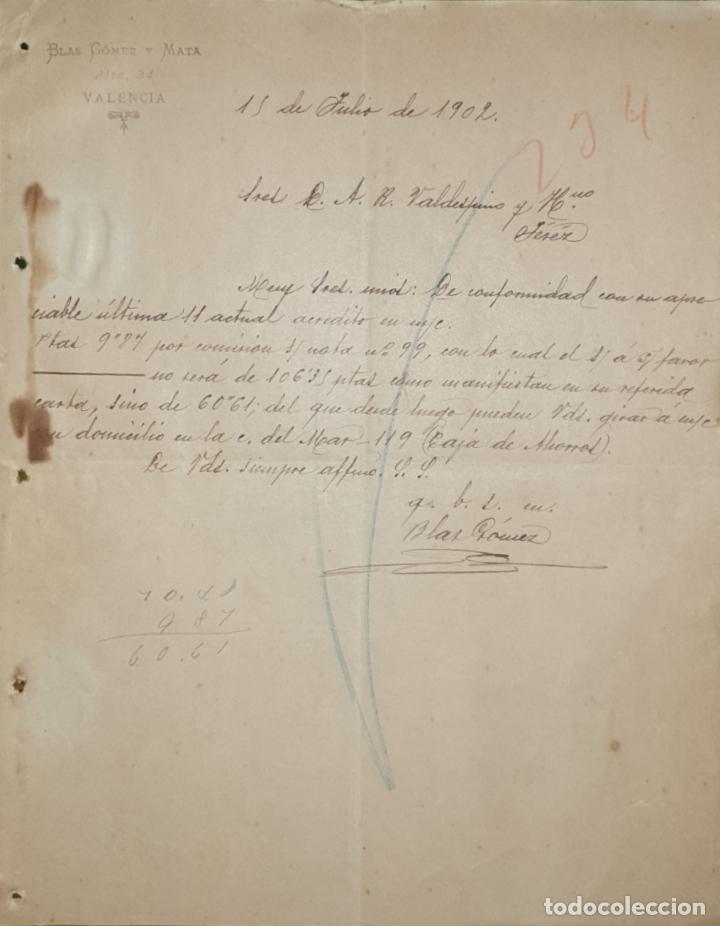 BLAS GÓMEZ Y MATA
Alta, 34
VALENCIA
15 de Julio de 1902.
234
Sres. D. A. R. Valdespino y H.no
Jeréz
Muy Sres. mios: De conformidad con su apre
ciable última 11 actual acredito en m/c.
Ptas 9'87 por comisión s/ nota nº 99, con lo cual el s/ á f/ favor
no será de 106'35 ptas como manifiestan en su referida
carta, sino de 60'61; del que desde luego pueden Vds. girar á m/c
con domicilio en la c. del Mar-119 (Caja de Ahorros).
De Vds. siempre affmo. S. S.
q. b. s. m.
Blas Gómez
70.48
9 87
60.61
todocoleccion